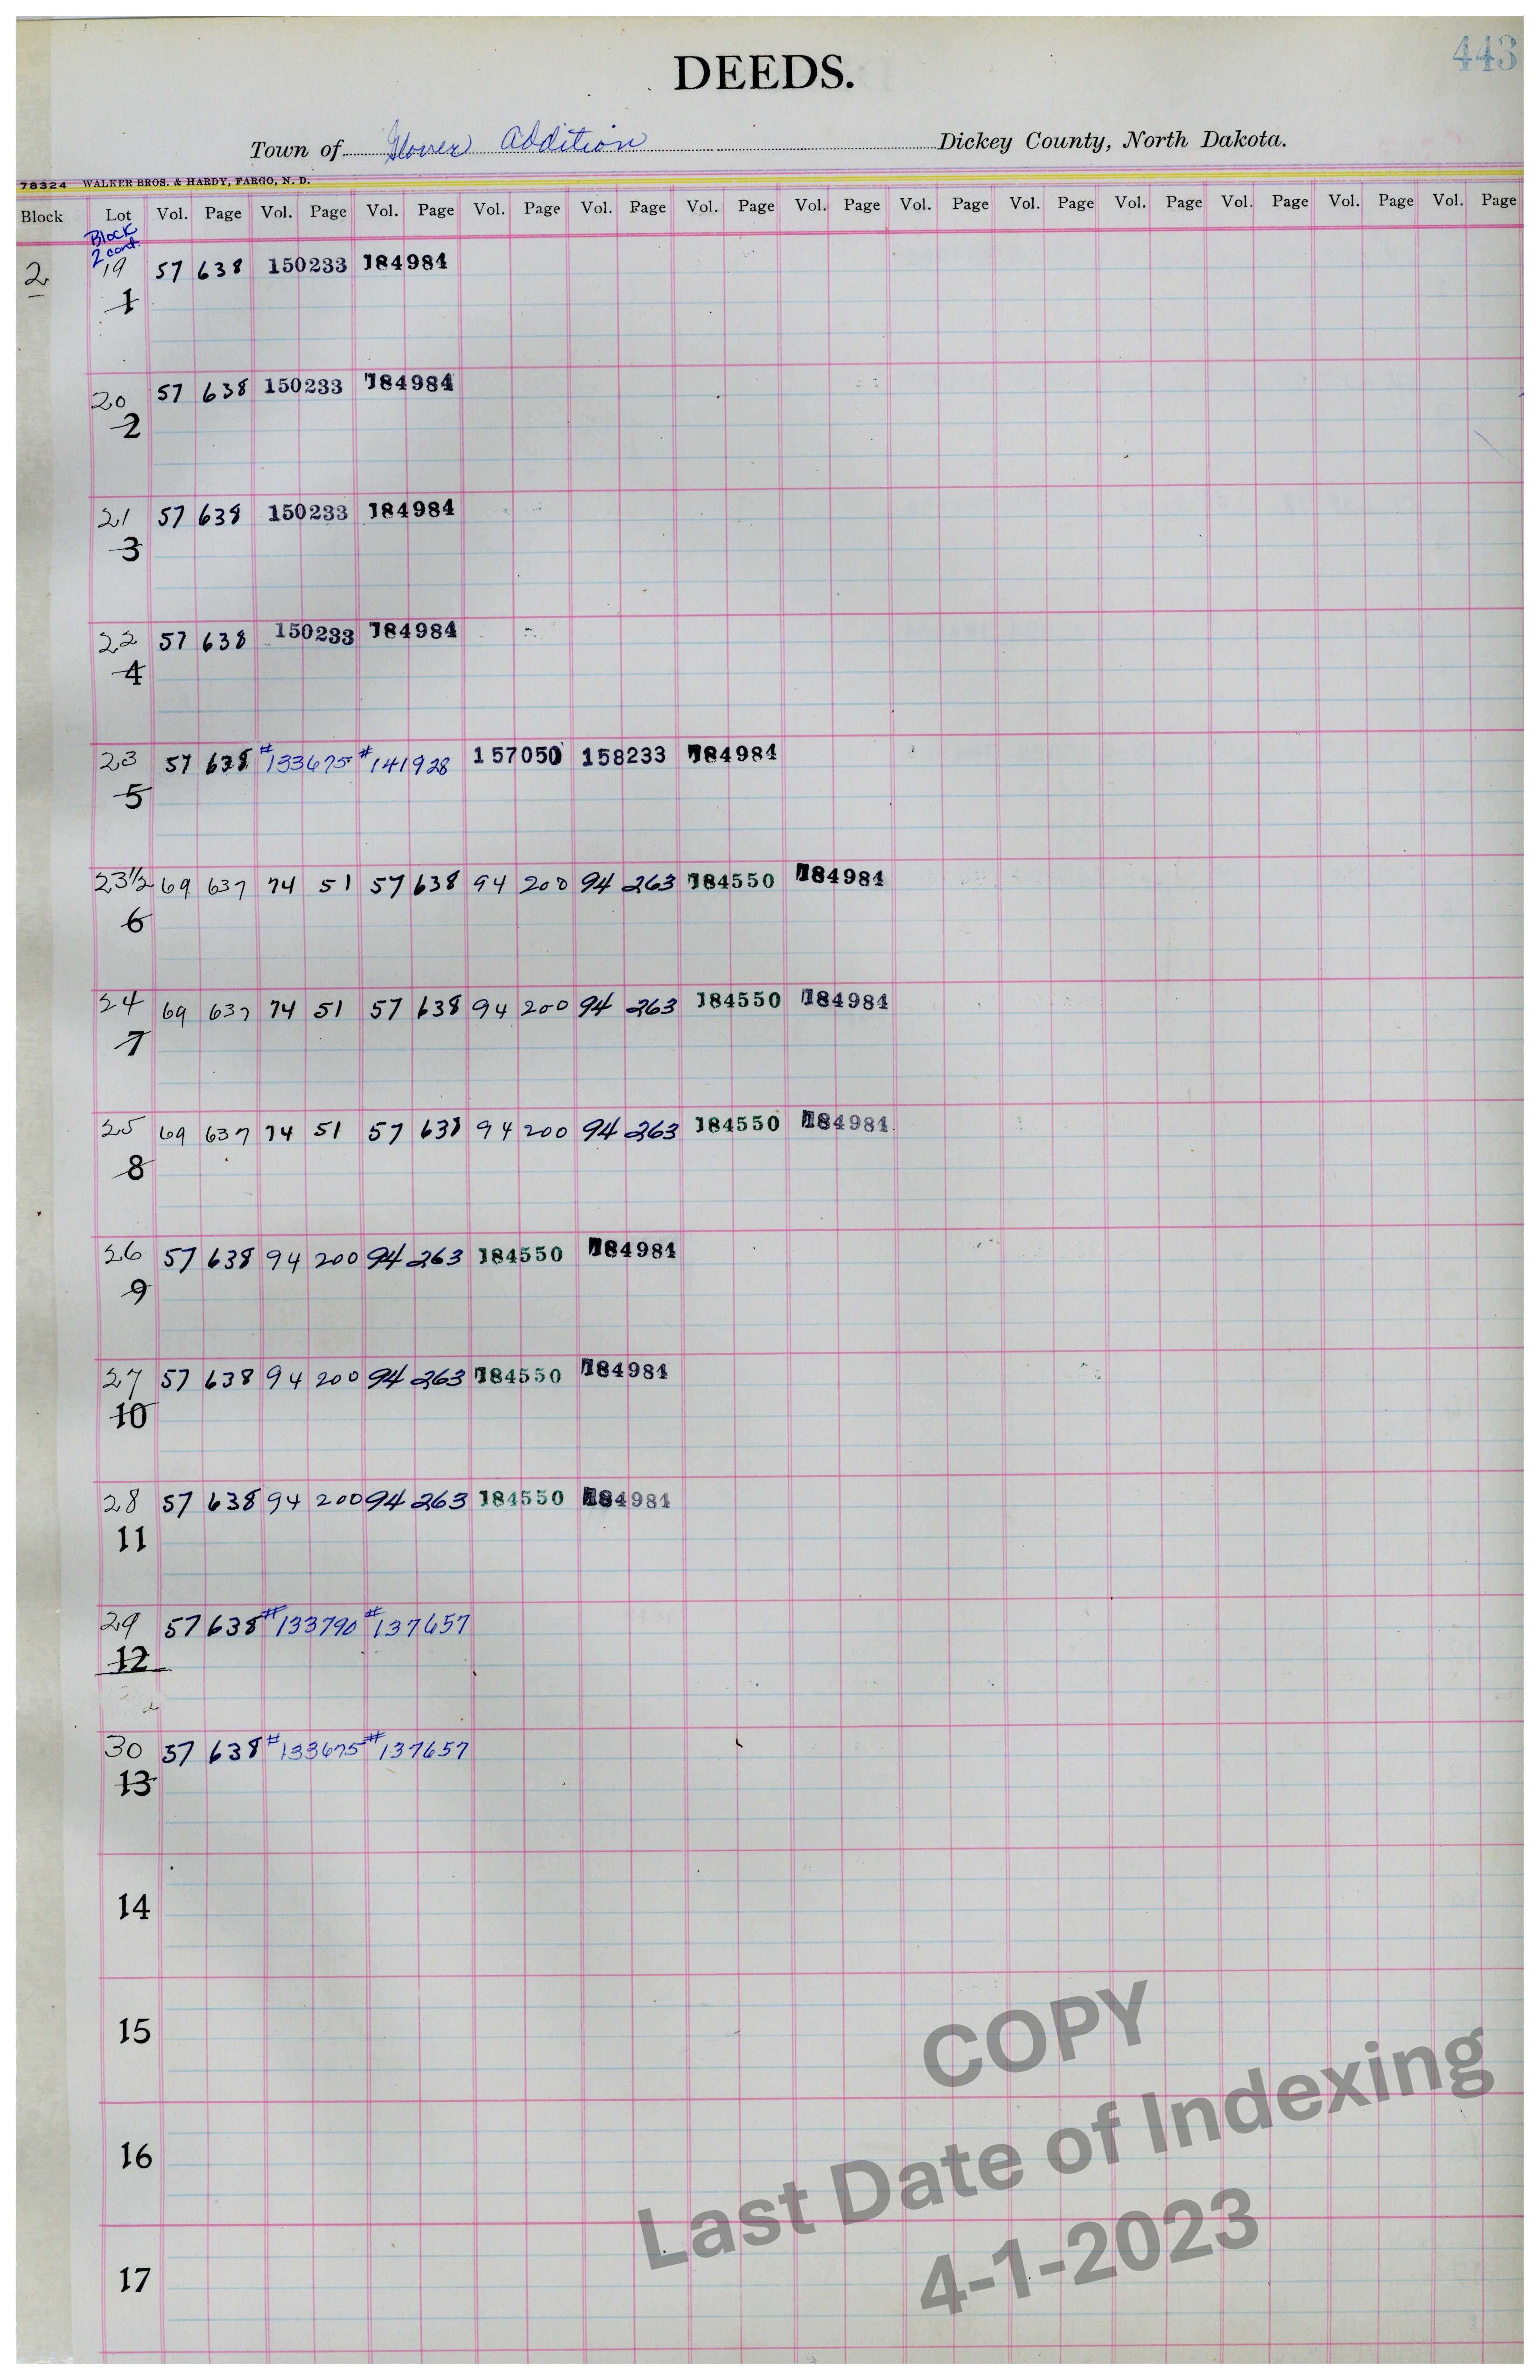 443
DEEDS.
Town of Glover Addition Dickey County, North Dakota.
78324 WALKER BROS. & HARDY, FARGO, N. D.
Block Lot Vol. Page Vol. Page Vol. Page Vol. Page Vol. Page Vol. Page Vol. Page Vol. Page Vol. Page Vol. Page Vol. Page Vol. Page Vol. Page
Block
2 cont.
2 19 57 638 150233 184984
1
20 57 638 150233 184984
2
21 57 638 150233 184984
3
22 57 638 150233 184984
4
23 57 638 #133675 #141928 157050 158233 184984
5
23½ 69 637 74 51 57 638 94 200 94 263 184550 184984
6
24 69 637 74 51 57 638 94 200 94 263 184550 184984
7
25 69 637 74 51 57 638 94 200 94 263 184550 184984
8
26 57 638 94 200 94 263 184550 184984
9
27 57 638 94 200 94 263 184550 184984
10
28 57 638 94 200 94 263 184550 184984
11
29 57 638 #133790 #137657
12
30 57 638 #133675 #137657
13
14
15
16
17
COPY
Last Date of Indexing
4-1-2023